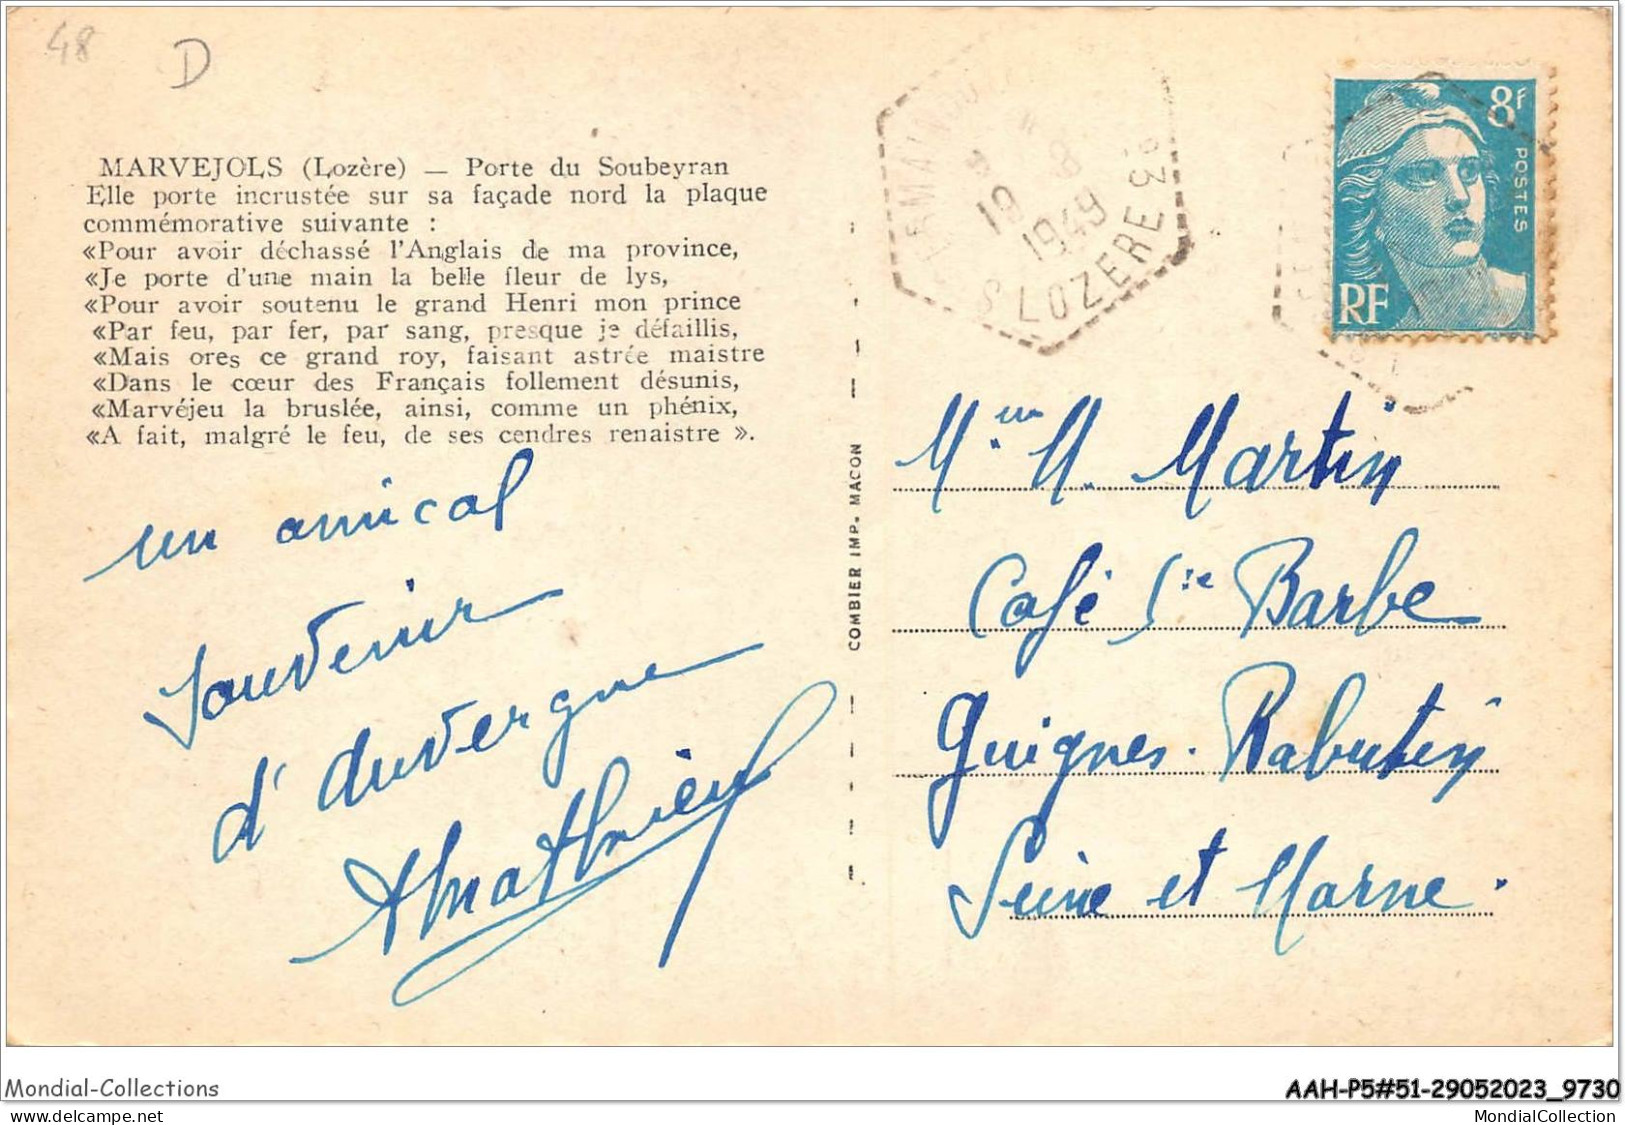 48
D
MARVEJOLS (Lozère) — Porte du Soubeyran
Elle porte incrustée sur sa façade nord la plaque
commémorative suivante :
«Pour avoir déchassé l'Anglais de ma province,
«Je porte d'une main la belle fleur de lys,
«Pour avoir soutenu le grand Henri mon prince
«Par feu, par fer, par sang, presque je défaillis,
«Mais ores ce grand roy, faisant astrée maistre
«Dans le cœur des Français follement désunis,
«Marvéjeu la bruslée, ainsi, comme un phénix,
«A fait, malgré le feu, de ses cendres renaistre ».
un amical
souvenir
d'auvergne
AMathieu
COMBIER IMP. MACON
19 8
1949
LOZERE
8f
POSTES
RF
M. Martin
Café Ste Barbe
Guignes-Rabutin
Seine et Marne.
Mondial-Collections
AAH-P5#51-29052023_9730
www.delcampe.net
MondialCollection